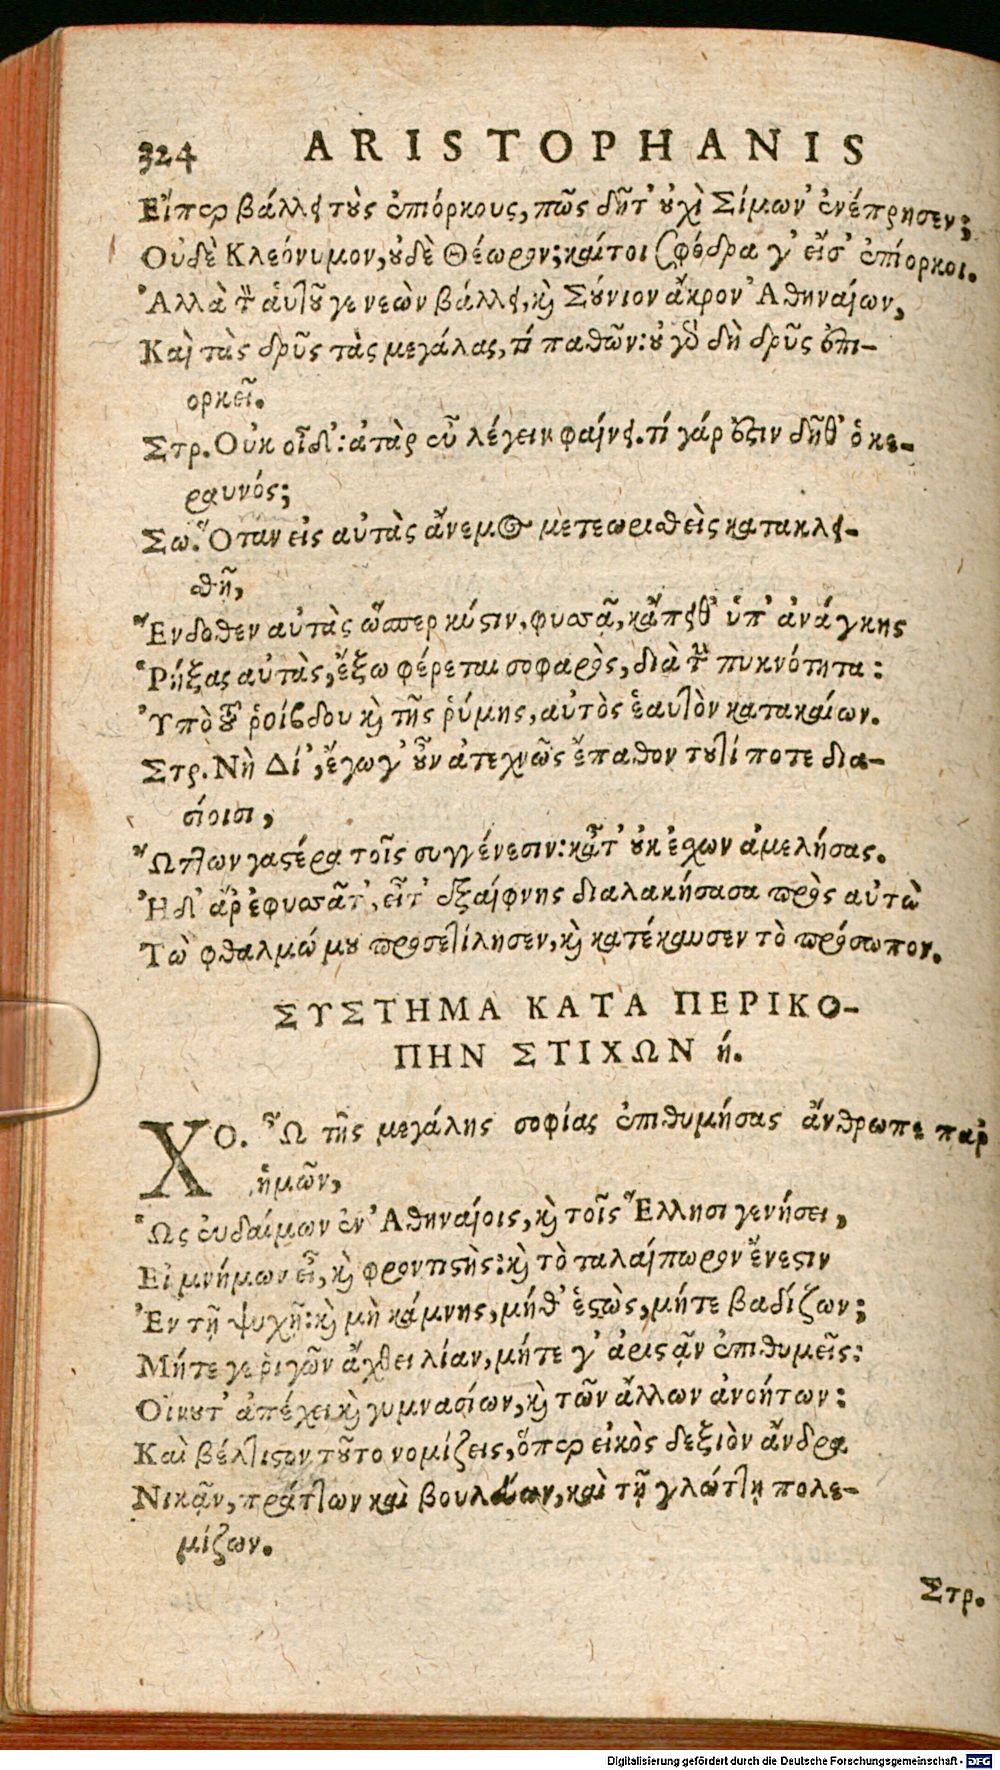 324 ARISTOPHANIS
Εἴπερ βάλλει τοὺς ἐπιόρκους, πῶς δῆτ' οὐχὶ Σίμων' ἐνέπρησεν;
Οὐδὲ Κλεόνυμον, οὐδὲ Θέωρον; καίτοι σφόδρα γ' εἴσ' ἐπίορκοι.
Ἀλλὰ τὸν αὑτοῦ γε νεὼν βάλλει, καὶ Σούνιον ἄκρον Ἀθηναίων,
Καὶ τὰς δρῦς τὰς μεγάλας, τί παθῶν: οὐ γὰρ δὴ δρῦς ἐπι-
ορκεῖ.
Στρ. Οὐκ οἶδ': ἀτὰρ εὖ λέγειν φαίνει. τί γάρ ἐστιν δῆθ' ὁ κε-
ραυνός;
Σω. Ὅταν εἰς αὐτὰς ἄνεμος μετεωρισθεὶς κατακλει-
θῇ,
Ἔνδοθεν αὐτὰς ὥσπερ κύστιν, φυσᾷ, κἄπειθ' ὑπ' ἀνάγκης
Ῥήξας αὐτὰς, ἔξω φέρεται σοφαρὸς, διὰ τὴν πυκνότητα:
Ὑπὸ τοῦ ῥοίβδου καὶ τῆς ῥύμης, αὐτὸς ἑαυτὸν κατακαίων.
Στρ. Νὴ Δί', ἔγωγ' οὖν ἀτεχνῶς ἔπαθον τουτί ποτε δια-
σίοισι,
Ὤπτων γαστέρα τοῖς συγγένεσιν: κᾆτ' οὐκ ἔσχων ἀμελήσας.
Ἡ δ' ἄρ' ἐφυσᾶτ', εἶτ' ἐξαίφνης διαλακήσασα πρὸς αὐτὼ
Τὼ φθαλμώ μου προσετίλησεν, καὶ κατέκαυσεν τὸ πρόσωπον.
ΣΥΣΤΗΜΑ ΚΑΤΑ ΠΕΡΙΚΟ-
ΠΗΝ ΣΤΙΧΩΝ ή.
ΧΟ. Ὦ τῆς μεγάλης σοφίας ἐπιθυμήσας ἄνθρωπε παρ'
ἡμῶν,
Ὡς εὐδαίμων ἐν Ἀθηναίοις, καὶ τοῖς Ἕλλησι γενήσει,
Εἰ μνήμων εἶ, καὶ φροντιστὴς: καὶ τὸ ταλαίπωρον ἔνεστιν
Ἐν τῇ ψυχῇ: καὶ μὴ κάμνης, μήθ' ἑστὼς, μήτε βαδίζων;
Μήτε γε ῥιγῶν ἄχθει λίαν, μήτε γ' ἀριστᾷν ἐπιθυμεῖς:
Οἴνου τ' ἀπέχει καὶ γυμνασίων, καὶ τῶν ἄλλων ἀνοήτων:
Καὶ βέλτιστον τοῦτο νομίζεις, ὅπερ εἰκὸς δεξιὸν ἄνδρα
Νικᾷν, πράττων καὶ βουλεύων, καὶ τῇ γλώττῃ πολε-
μίζων.
Στρ.
Digitalisierung gefördert durch die Deutsche Forschungsgemeinschaft - DFG